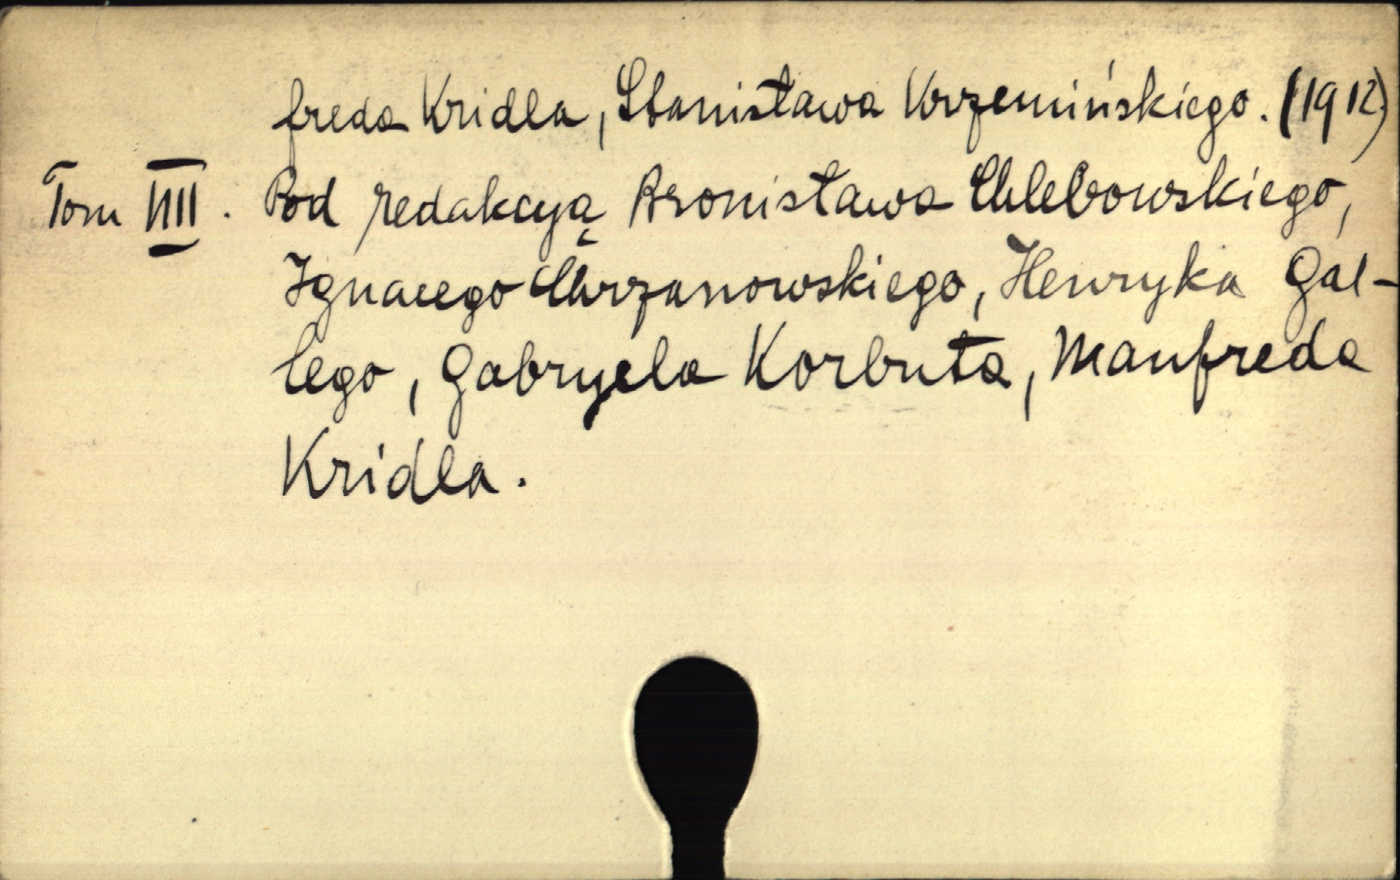 freda Kridla, Stanisława Krzemińskiego. (1912)
Tom VIII. Pod redakcyą Bronisława Chlebowskiego,
Ignacego Chrzanowskiego, Henryka Gal-
lego, Gabryela Korbuta, Manfreda
Kridla.